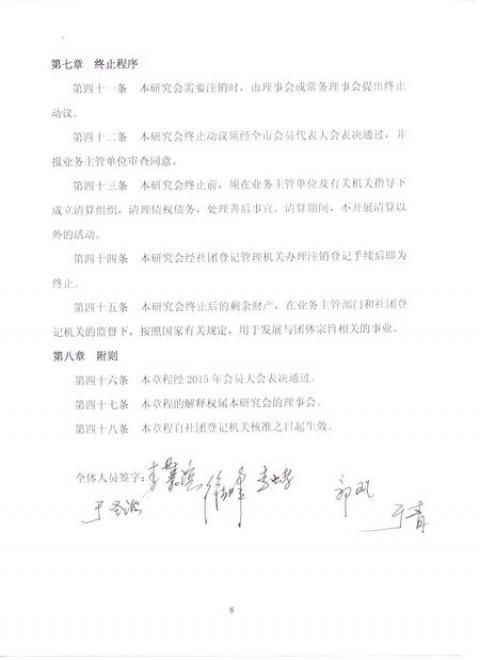 第七章　终止程序
第四十一条　本研究会需要注销时，由理事会或常务理事会提出终止
动议。
第四十二条　本研究会终止动议须经全市会员代表大会表决通过，并
报业务主管单位审查同意。
第四十三条　本研究会终止前，须在业务主管单位及有关机关指导下
成立清算组织，清理债权债务，处理善后事宜。清算期间，不开展清算以
外的活动。
第四十四条　本研究会经社团登记管理机关办理注销登记手续后即为
终止。
第四十五条　本研究会终止后的剩余财产，在业务主管部门和社团登
记机关的监督下，按照国家有关规定，用于发展与团体宗旨相关的事业。
第八章　附则
第四十六条　本章程经 2015 年会员大会表决通过。
第四十七条　本章程的解释权属本研究会的理事会。
第四十八条　本章程自社团登记机关核准之日起生效。
全体人员签字：
于青
8